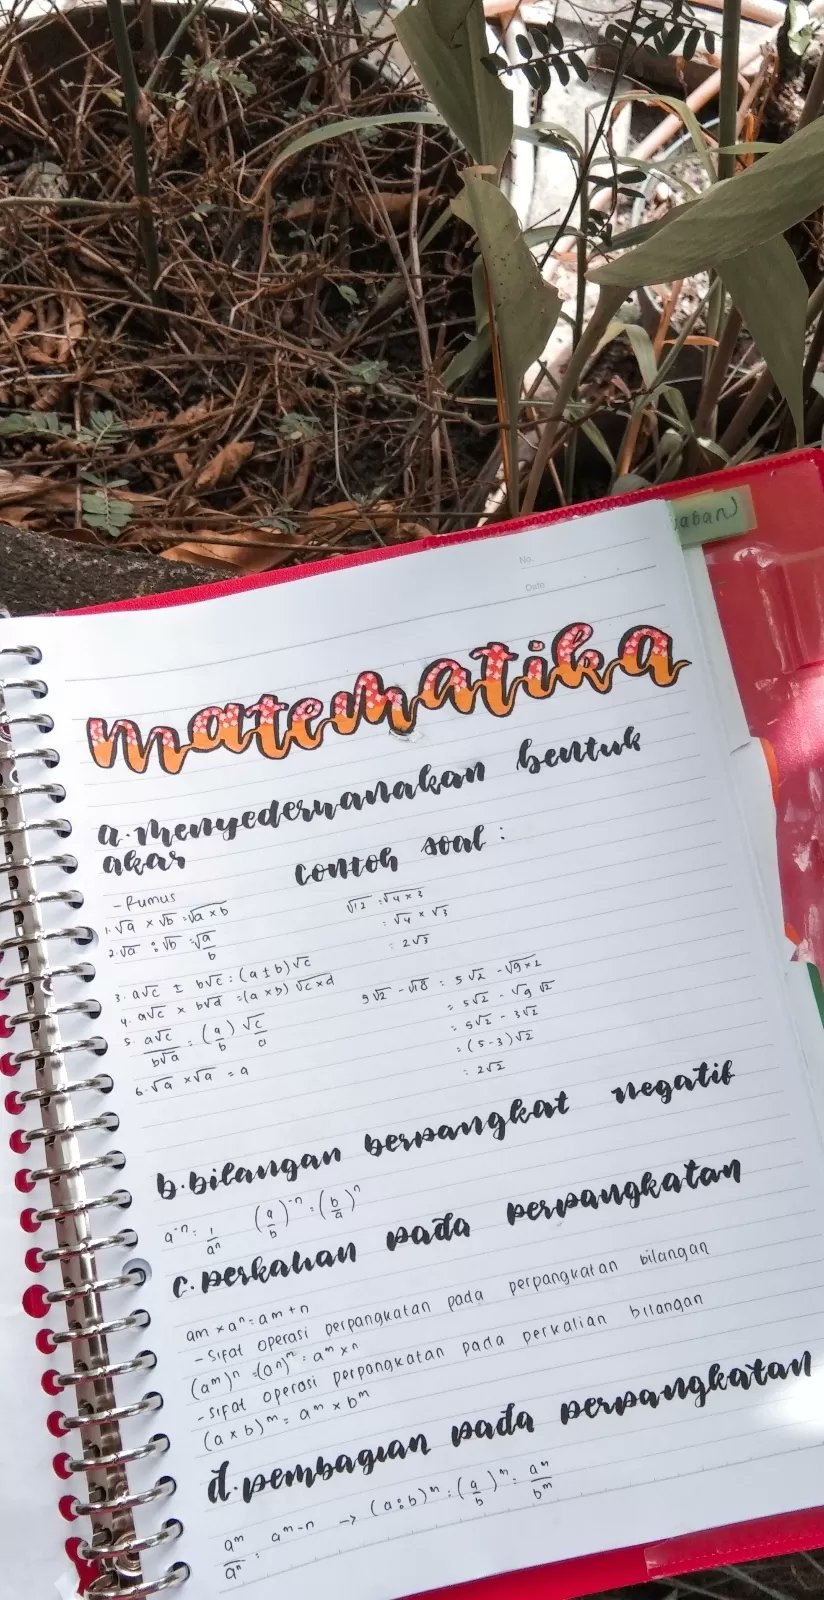 No.
Date
aban)
matematika
a. menyederhanakan bentuk
akar
contoh soal :
- Rumus
1. √a × √b = √a × b
2. √a : √b = √a/b
3. a√c ± b√c = (a ± b) √c
4. a√c × b√d = (a × b) √c × d
5. a√c / b√a = (a/b) √c/a
6. √a × √a = a
√12 = √4 × 3
= √4 × √3
= 2√3
5√2 - √18 = 5√2 - √9 × 2
= 5√2 - √9 √2
= 5√2 - 3√2
= (5-3)√2
= 2√2
b. bilangan berpangkat negatif
a⁻ⁿ = 1/aⁿ (a/b)⁻ⁿ = (b/a)ⁿ
c. perkalian pada perpangkatan
am × aⁿ = am + n
- Sifat operasi perpangkatan pada perpangkatan bilangan
(aᵐ)ⁿ = (aⁿ)ᵐ = aᵐ × ⁿ
- Sifat operasi perpangkatan pada perkalian bilangan
(a × b)ᵐ = aᵐ × bᵐ
d. pembagian pada perpangkatan
aᵐ/aⁿ = aᵐ⁻ⁿ → (a : b)ᵐ = (a/b)ᵐ = aᵐ/bᵐ